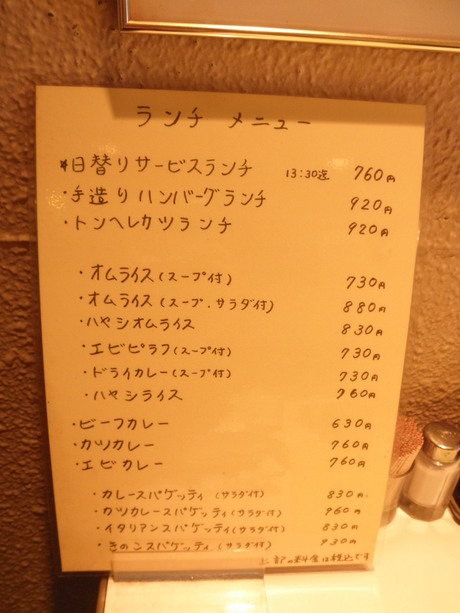 ランチ メニュー
*日替りサービスランチ 13:30迄 760円
・手造りハンバーグランチ 920円
・トンヘレカツランチ 920円
・オムライス(スープ付) 730円
・オムライス(スープ.サラダ付) 880円
・ハヤシオムライス 830円
・エビピラフ(スープ付) 730円
・ドライカレー(スープ付) 730円
・ハヤシライス 760円
・ビーフカレー 630円
・カツカレー 760円
・エビカレー 760円
・カレースパゲッティ (サラダ付) 830円.
・カツカレースパゲッティ(サラダ付) 960円
・イタリアンスパゲッティ(サラダ付) 830円
・きのこスパゲッティ (サラダ付) 930円
の料金は税込です